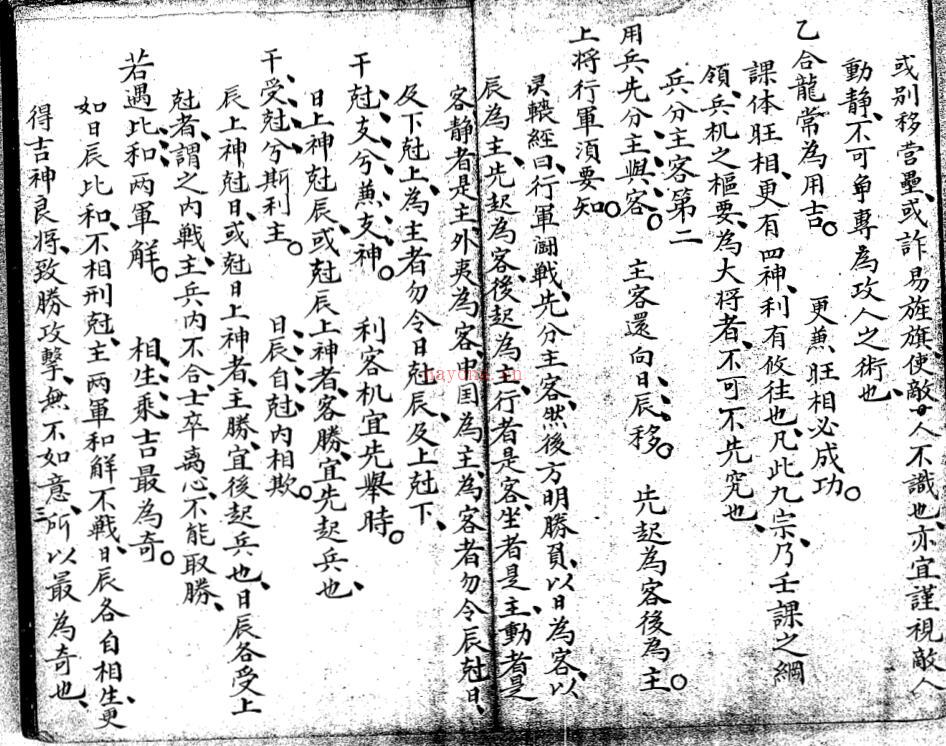 或别移营壘、或詐易旌旗、使敵人不識也、亦宜謹視敵人
動静、不可爭專為攻人之術也、
乙合龍常為用吉。 更蒹旺相必成功。
課体旺相、更有四神、利有攸往也、凡此九宗、乃壬課之綱
領、兵机之樞要、為大将者、不可不先究也、
兵分主客第二
用兵先分主與客。 主客還向日辰移。 先起為客後為主。
上将行軍須要知。
灵轄經曰、行軍鬪戦、先分主客、然後方明勝負、以日為客、以
辰為主、先起為客、後起為主、行者是客、坐者是主、動者是
客、静者是主、外夷為客、中国為主、為客者勿令辰尅日、
及下尅上、為主者勿令日尅辰、及上尅下、
干尅支兮蒹支神。 利客机宜先舉時。
日上神尅辰、或尅辰上神者、客勝、宜先起兵也、
干受尅兮斯利主。 日辰自尅内相欺。
辰上神尅日、或尅日上神者、主勝、宜後起兵也、日辰各受上
尅者、謂之内戦、主兵内不合、士卒离心、不能取勝、
若遇比和两軍解。 相生乘吉最為奇。
如日辰比和、不相刑尅、主两軍和解不戦、日辰各自相生、更
得吉神良将、致勝攻擊、無不如意、所以最為奇也、
三
hayona.cn